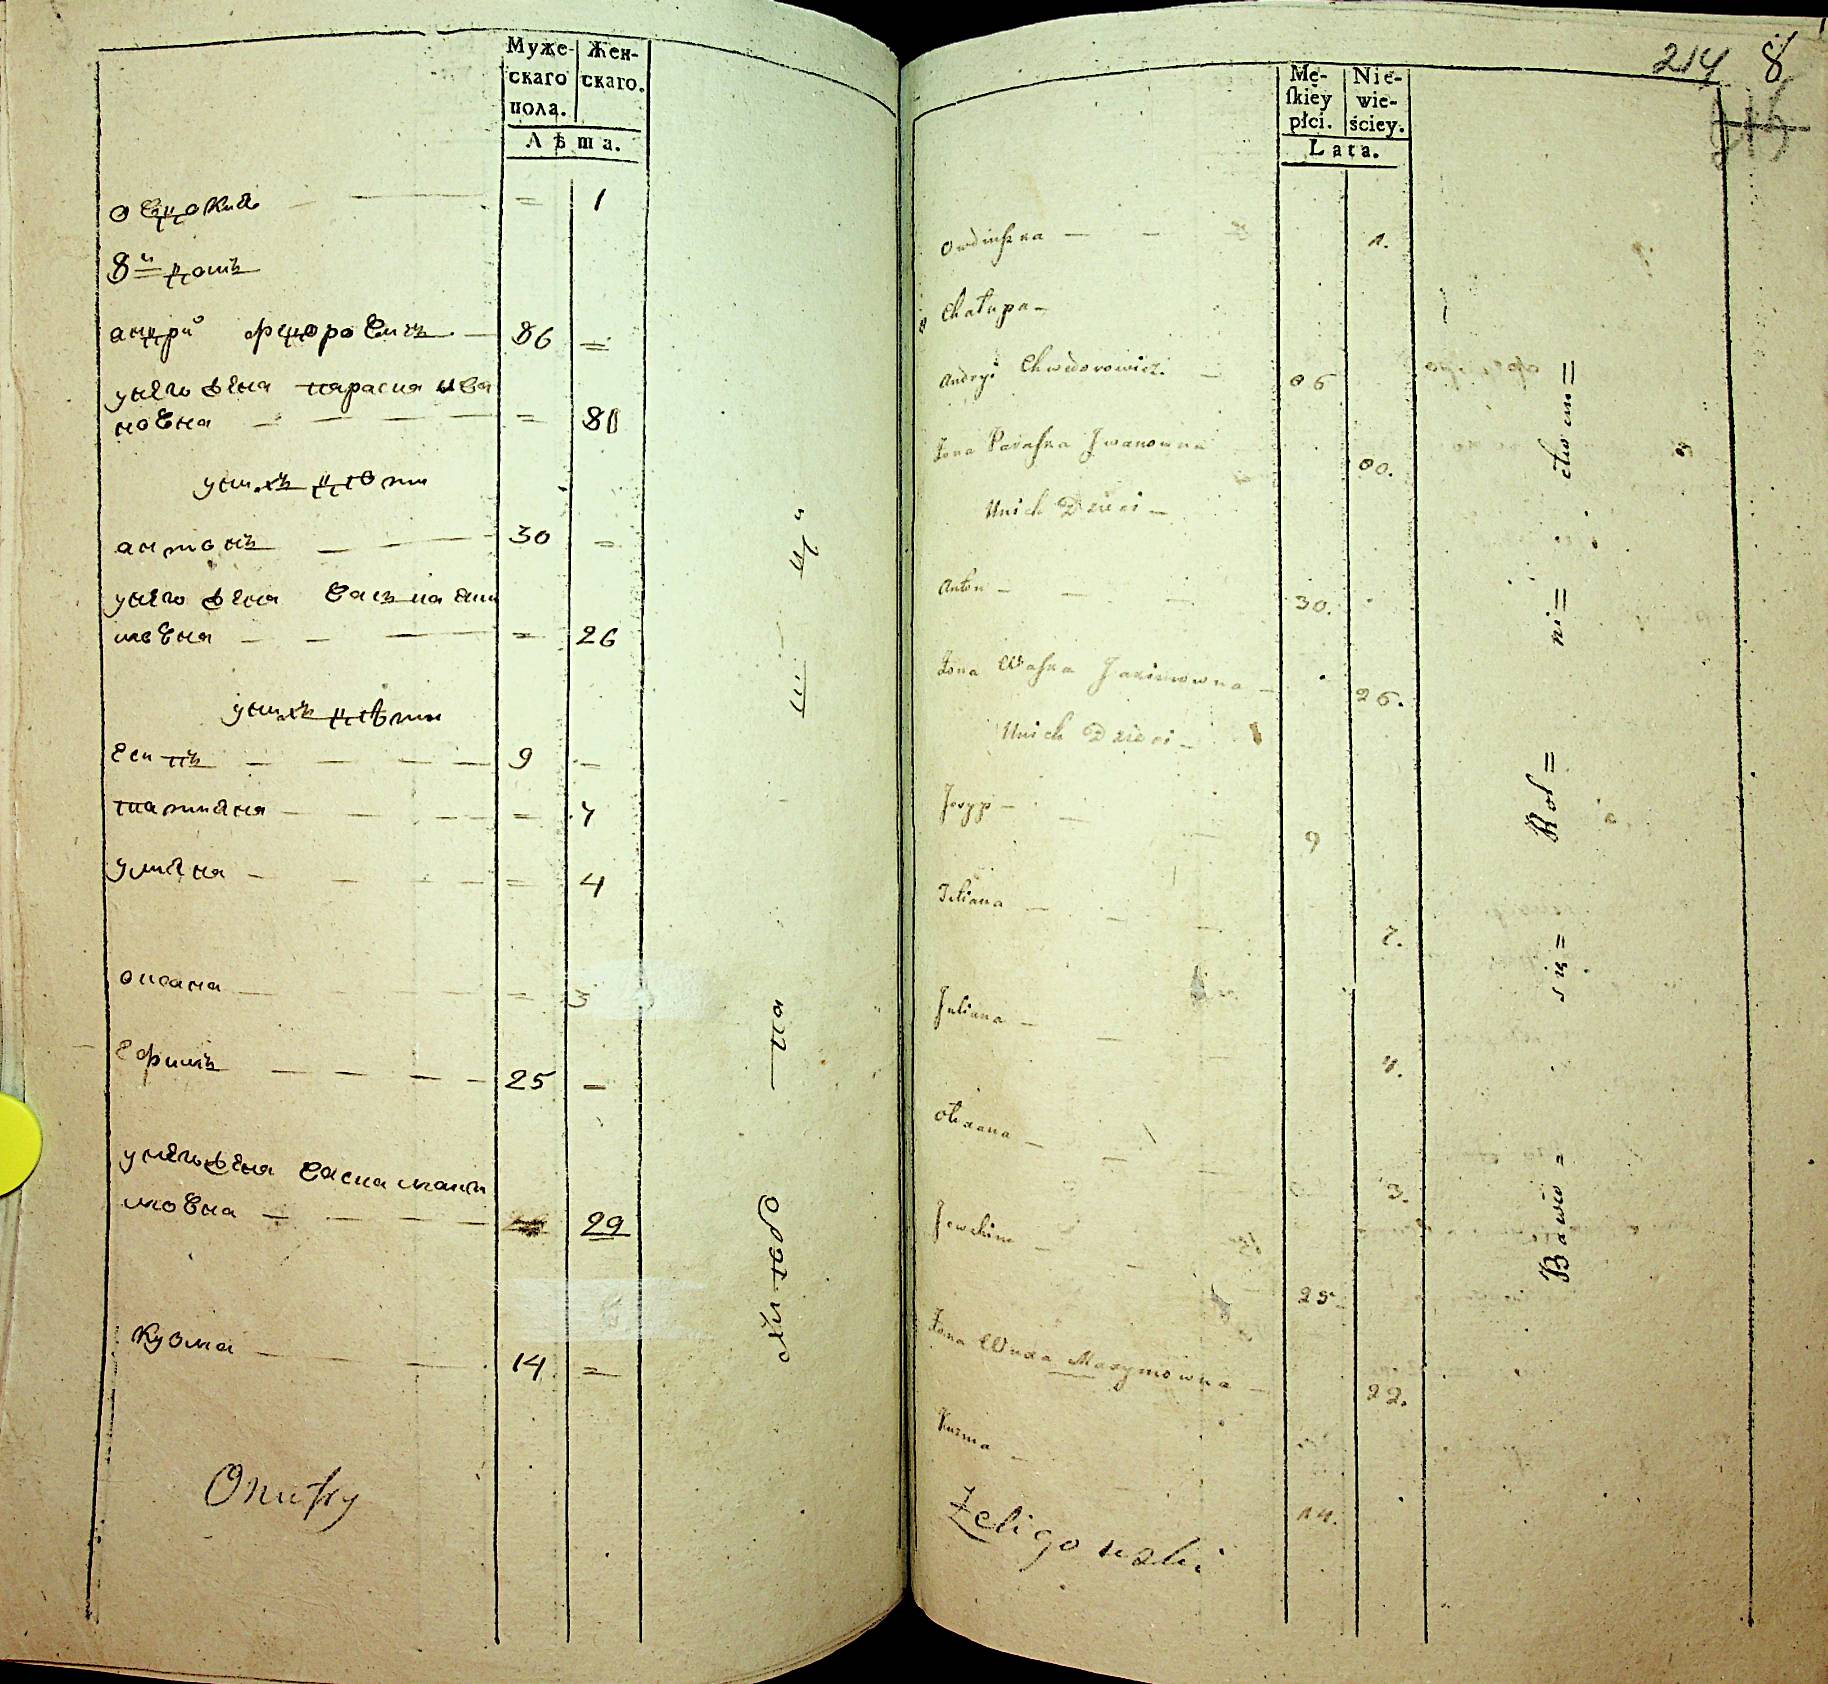 Муже-
скаго
пола.
Жен-
скаго.
Лѣта.
овдокиа — — = 1
8й домъ
андри федоровичъ — 86 =
унего жена параска ива
новна — — — = 80
унихъ дѣти
антонъ — — 30 =
унего жена васка аки
мовна — — — = 26
унихъ дѣти
есипъ — — — 9 —
татиана — — — = 7
улиана — — — = 4
оксана — — — = 3
ефимъ — — — 25 —
унего жена васка макси
мовна — — — 29
кузма — — 14 =
Onufry
214 8
Mę-
ſkiey
płci.
Nie-
wie-
ściey.
Lata.
Owdiuſzka — — 1.
8 Chałupa —
Andryi Chwedorowicz — 86
Żona Paraſka Jwanowna 80.
Unich Dzieci —
Anton — — — 30.
Żona Waſka Jakimowna — 26.
Unich Dzieci —
Josypp — — — 9
Tetiana — — — 7.
Juliana — — — 4.
Oxana — — — 3.
Jewchim — — 25
Żona Waska Maxymowna — 22.
Kuzma — 14.
Żeligowski
Bawią = się = Rol = ni = ctwem =